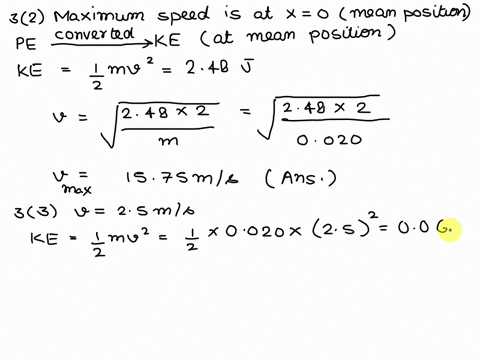 3(2) Maximum speed is at x=0 (mean position)
PE converted → KE (at mean position)
KE = 1/2 mv² = 2.48 J
v = √(2.48 × 2 / m) = √(2.48 × 2 / 0.020)
v max = 15.75 m/s (Ans.)
3(3) v = 2.5 m/s
KE = 1/2 mv² = 1/2 × 0.020 × (2.5)² = 0.06